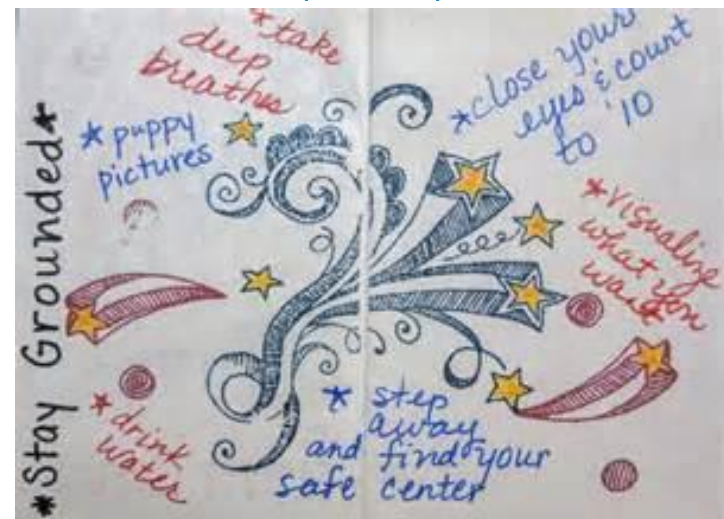 *Stay Grounded*
*take
deep
breathes
*puppy
pictures
*close your
eyes & count
to 10
*visualize
what you
want
*drink
water
*step
away
and find your
safe center